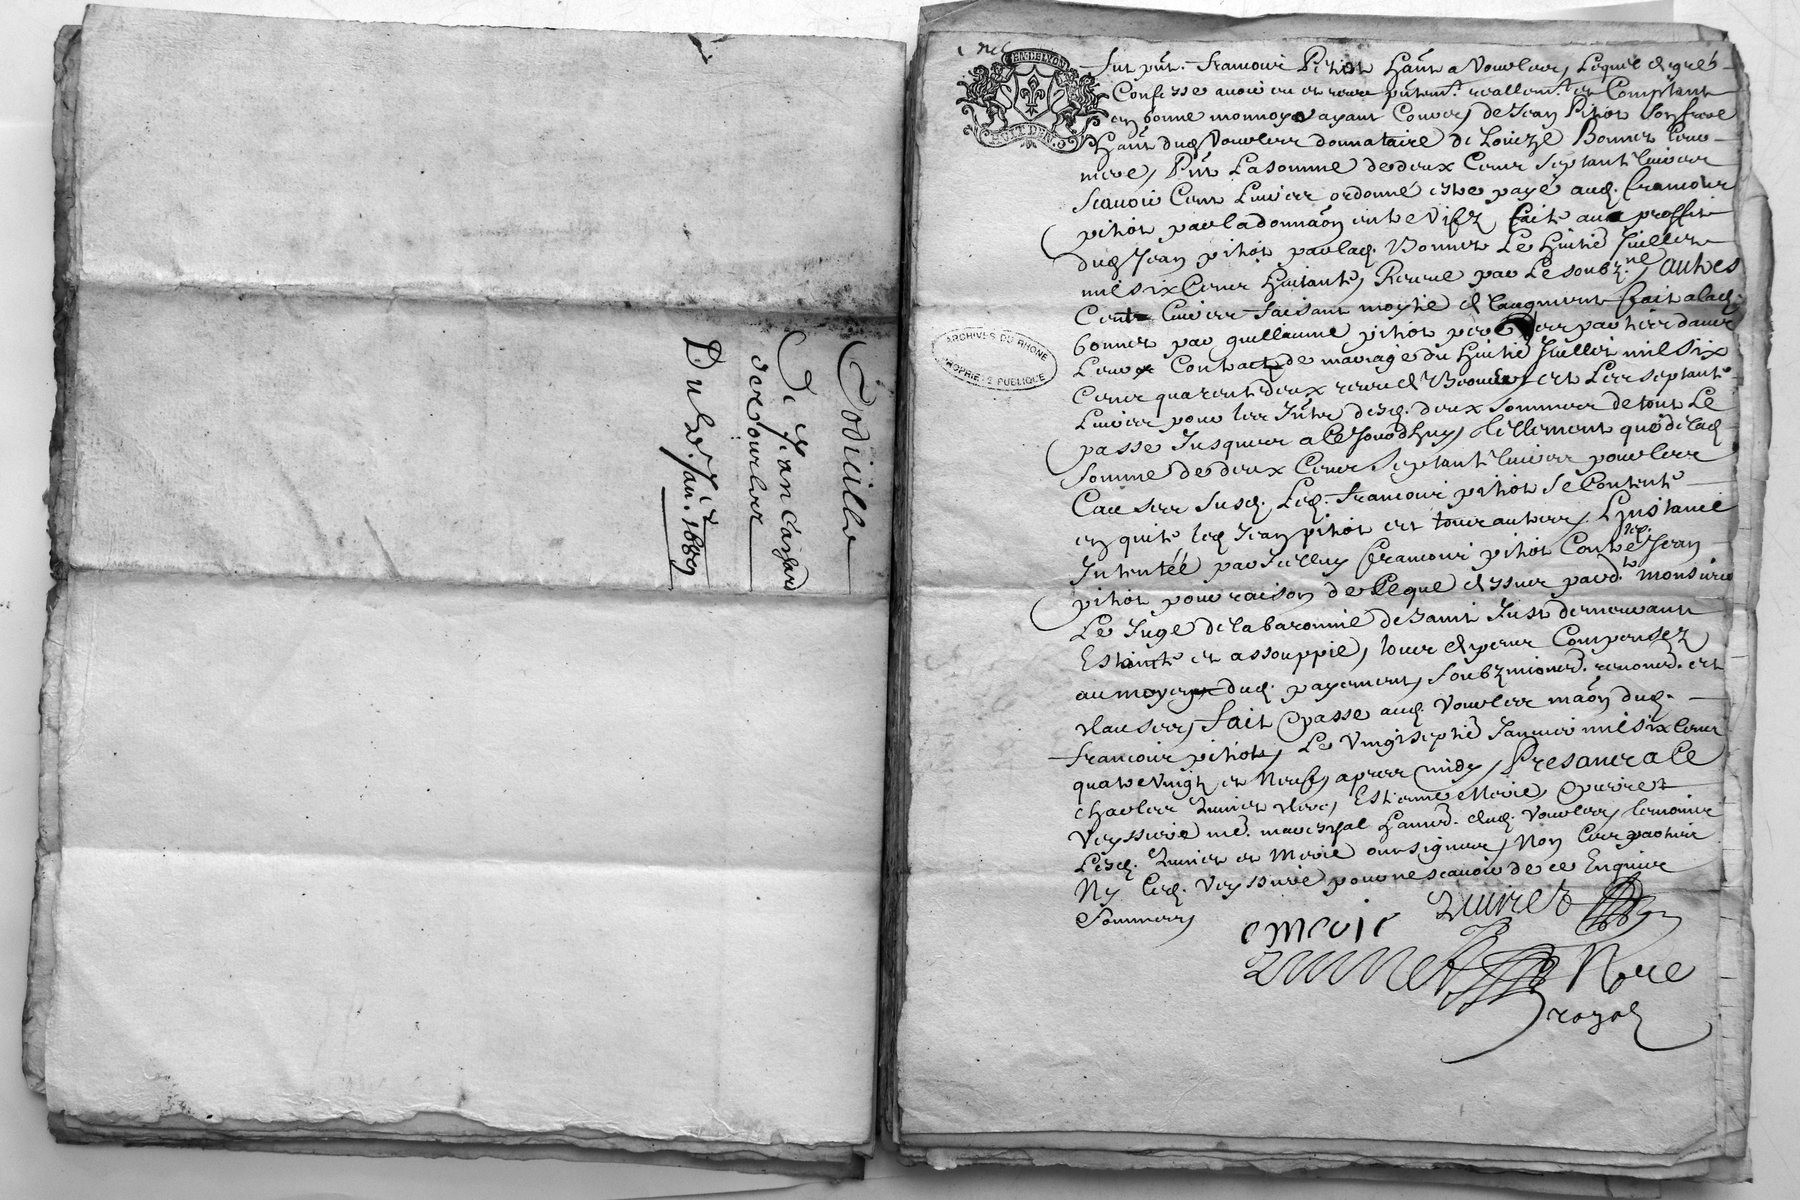 Codicille
De Jean
de vourles
Du 22e Jan. 1689
GEN. DE LYON
HUIT DEN.
ARCHIVES DU RHONE
PROPRIÉTÉ PUBLIQUE
fut pñt. francois Pitiot hãnt a Vourles, Lequel de gré
Confesse avoir eu et receu pñtemt. reallemt. et Comptant
en bonne monnoye ayant Cours, de Jean Pitiot son frere
hãnt dud. Vourles donnataire de Bonnet leur
mere, pñt La somme de deux Cens septante livres
scavoir Cent Livres ordonné estre payé aud. francois
pitiot par la donnãon entre vifz faite au proffit
dud. Jean pitiot par lad. Bonnet Le huitie Juillet
mil six Cens huitante, Receue par Le soubz.né, autres
Cent Livres faisant moytié de laugment fait a lad.
bonnet par guillaume pitiot pere
Leur Contract de mariage du huitie Juillet mil six
Cens quarente deux receu et les septante
Livres pour les Intr. desd. deux sommes de tout Le
passé Jusques a ce Jourdhuy, tellement que de lad.
somme de deux Cens septante livres pour les
Causes susd. Led. francois pitiot se Contente
en quite led. Jean pitiot et tous autres, Linstance
Intentée par Icelluy francois pitiot Contre led. Jean
pitiot pour raison de ce que dessus pardt. monsieur
Le Juge de la baronnie de saint Just demeurant
Estainte et assouppie, tous despens Compensez
au moyen dud. payement, soubzmiond. renond. et
Clauses, fait & passé aud. Vourles mãon dud.
francois pitiot, Le Vingt septie Janvier mil six Cens
quatre vingtz et Neuf, apres midy, Presans a ce
Charles Zuinet clerc, Estienne Merie & pierre
Veyssiere me. mareschal hannd. dud. Vourles, temoins
Lesd. Zuinet et Merie ont signes, Non Les parties
Ny Led. Veyssiere pour ne scavoir de ce Enquis
& sommes,
e merie
Zuinet
Zuinet Nore
royal